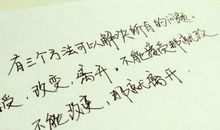 有三个方法可以解决所有的问题
受，改变，离开。不能接受那就改
不能改变，那就离开。